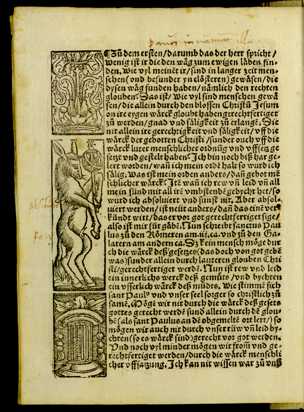 Zů dem ersten / darumb das der herr spricht /
wenig ist ir die den wäg zum ewigen läben fin-
den. Wie vyl meinēt ir / sind in langer zeit men-
schen (vnd besunder yn clöstern) gewäsen / die
dysen wäg funden haben / nämlich den rechten
glouben? Das ist / Wie vyl sind menschen gewä
sen / die allein durch den blossen Christū Jesum
on ire eygen wärck gloubt haben gerechtfertiget
zů werden / gnad vnd säligkeit zů erlangē. Sie
nit allein ire gerechtigkeit vnd säligkeit / vff die
wärck der gebotten Christi / sunder ouch vff die
wärck luter menschlicher ordnung vnd vffsetzūg ge
setzt vnd gestelt haben? Ich bin noch
worden / wañ ich mein ordē halt so wurd ich
sälig. Was ist mein orden anders / dañ
schlicher wärck? Jtē wañ ich rew vñ leid vm all
mein sünd
wurd ich absoluiert vnd sunst nit. Aber absol-
uiert werden / ist nüt anders / dañ das eine ver
kündt wirt / das er vor got gerechtfertiget sige /
also ist mir für gäbē. Nun schreibt sanctus Paul
lus zů den Römeren am .iii. ca. vnd zů den Ga-
latern am andern ca. Es kein mensch möge dur
ch die wärck deß gesetzes / das doch von got gebē
was / sunder allein durch lautern glouben Chri
sti / gerechtfertiget werd. Nun ist rew vnd leid
ein innerlichs werck deß gemüts / vnd bychten
ein vsserlich wärck deß mūdes. Wie stimpt sich
sant Pauls vnd vnser seel sorger so christlich zů
samē. Möge wir nit durch die wärck deß gesetz
gottes gerecht werdē / sund allein durch dē glou-
bē (als sant Paulus an dē obgemeltē ort lert) / so
mögen wir auch nit durch vnser rüw vñ leid by-
chten (so es wärck sind) gerecht vor got werden.
Vnd noch vyl minder mögen wir from̄ vnd ge-
rechtfertiget werden / durch die wärck menschli
cher vffsatzung. Ich kan nit wissen war zů vnß